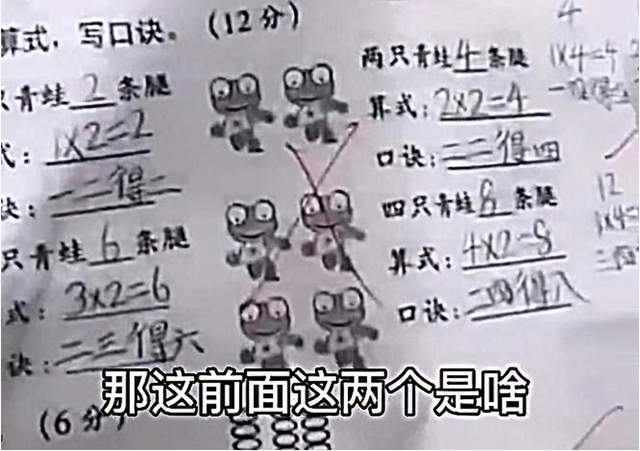 算式，写口诀。（12分）
只青蛙2条腿
式：1×2=2
诀：一二得二
只青蛙6条腿
式：3×2=6
诀：二三得六
两只青蛙4条腿
算式：2×2=4
口诀：二二得四
四只青蛙8条腿
算式：4×2=8
口诀：二四得八
4
1×4=4
12
3×4=
三四
那这前面这两个是啥
（6分）